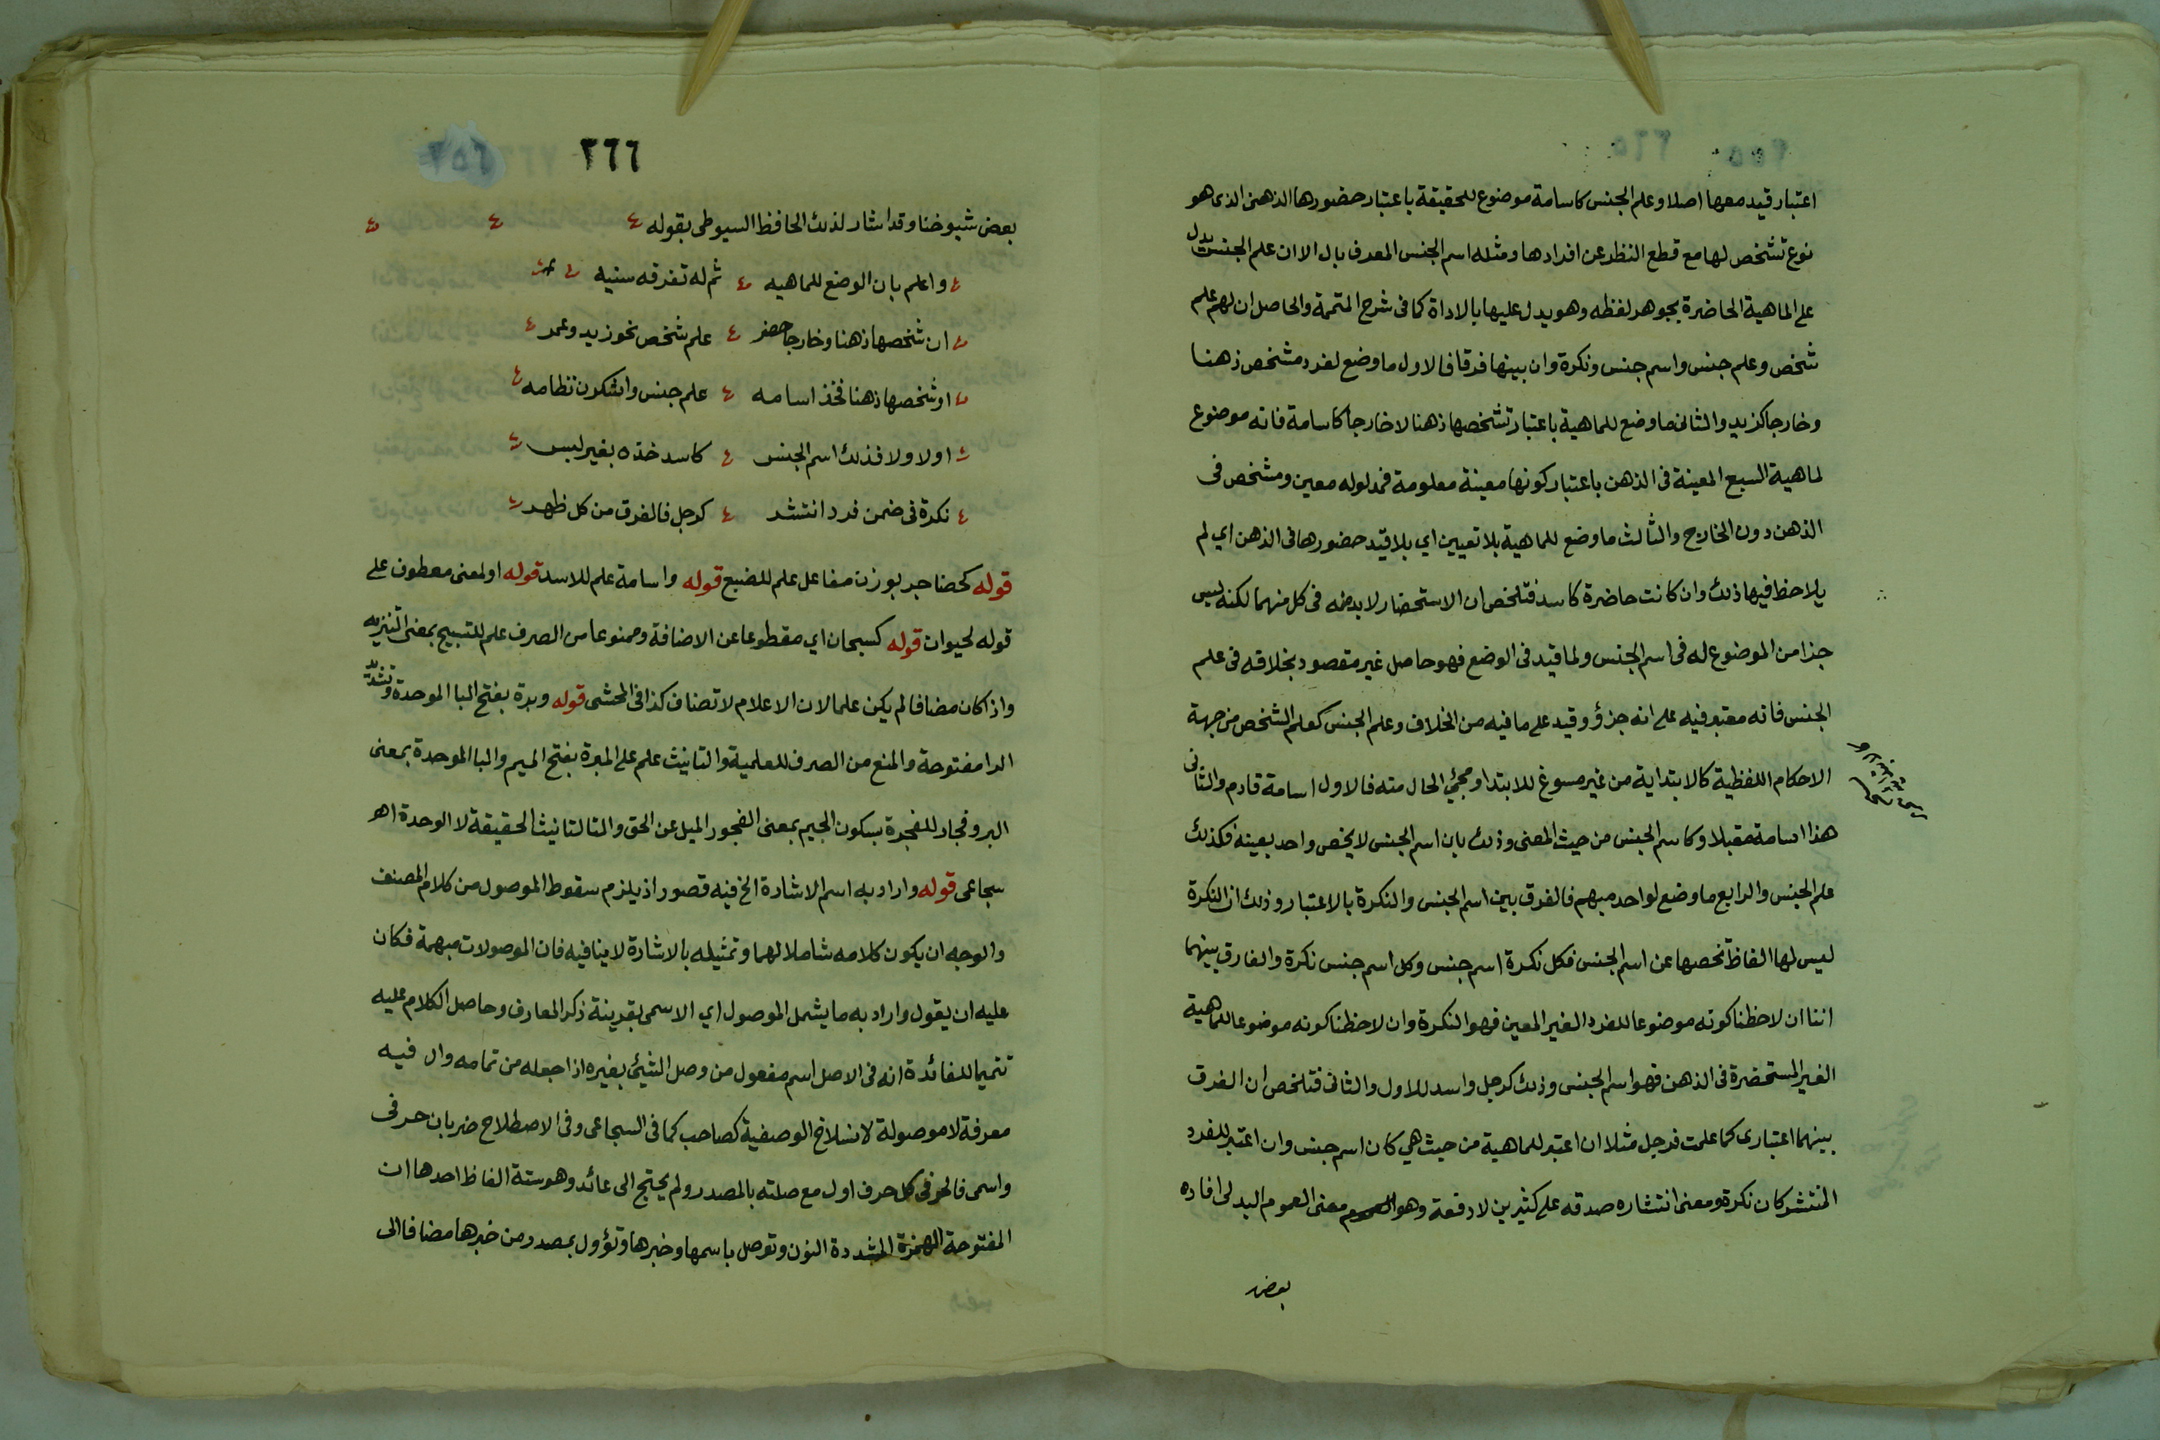 اعتبار قيد معها اصلا وعلم الجنس كاسامة موضوع للحقيقة باعتبار حضورها الذهنى الذى هو
نوع تشخص لها مع قطع النظر عن افرادها ومثله اسم الجنس المعرف بال الا ان علم الجنس يدل
على الماهية الحاضرة بجوهر لفظه وهو يدل عليها بالاداة كما فى شرح المتممة والحاصل ان لهم علم
شخص وعلم جنس واسم جنس ونكرة وان بينها فرقا فالاول ما وضع لفرد مشخص ذهنا
وخارجا كزيد والثانى ما وضع للماهية باعتبار تشخصها ذهنا لا خارجا كاسامة فانه موضوع
لماهية السبع المعينة فى الذهن باعتبار كونها معينة معلومة فمدلوله معين ومشخص فى
الذهن دون الخارج والثالث ما وضع للماهية بلا تعيين اي بلا قيد حضورها فى الذهن اي لم
يلاحظ فيها ذلك وان كانت حاضرة كاسد فتلخص ان الاستحضار لا بد منه فى كل منهما لكنه ليس
جزا من الموضوع له فى اسم الجنس ولما قيد فى الوضع فهو حاصل غير مقصود بخلافه فى علم
الجنس فانه معتبر فيه على انه جزؤ وقيد على ما فيه من الخلاف وعلم الجنس كعلم الشخص من جهة
الاحكام اللفظية كالابتداية من غير مسوغ للابتدا ومجئ الحال منه فالاول اسامة قادم والثانى
هذا اسامة مقبلا وكاسم الجنس من حيث المعنى وذلك بان اسم الجنس لا يخص واحد بعينه فكذلك
علم الجنس والرابع ما وضع لواحد مبهم فالفرق بين اسم الجنس والنكرة بالاعتبار وذلك ان النكرة
ليس لها الفاظ تخصها عن اسم الجنس فكل نكرة اسم جنس وكل اسم جنس نكرة والفارق بينهما
اننا ان لاحظنا كونه موضوعا للفرد الغير المعين فهو النكرة وان لاحظنا كونه موضوعا للماهية
الغير المستحضرة فى الذهن فهو اسم الجنس وذلك كرجل واسد للاول والثانى فتلخص ان الفرق
بينهما اعتبارى كما علمت فرجل مثلا ان اعتبر للماهية من حيث هي كان اسم جنس وان اعتبر للفرد
المنتشر كان نكرة ومعنى انتشاره صدقه على كثيرين لا دفعة وهو معنى العموم البدلى افاده
بعض
٢٦٦
بعض شيوخنا وقد اشار لذلك الحافظ السيوطى بقوله
واعلم بان الوضع للماهيه ثم له تفرقه سنيه
ان شخصها ذهنا وخارجا حضر علم شخص نحو زيد وعمر
او شخصها ذهنا فخذ اسامه علم جنس واشكرن نظامه
اولا ولا فذلك اسم الجنس كاسد خذه بغير لبس
نكرة فى ضمن فرد انتشر كرجل فالفرق من كل ظهر
قوله كحضاجر بوزن مفاعل علم للضبع قوله واسامة علم للاسد قوله او لمعنى معطون على
قوله لحيوان قوله كسبحان اي مقطوعا عن الاضافة وممنوعا من الصرف علم للتسبيح بمعنى التنزيه
واذا كان مضافا لم يكن علما لان الاعلام لا تضاف كذا فى المحشى قوله وبرة بفتح البا الموحدة وتشديد
الرا مفتوحة والمنع من الصرف للعلمية والتانيث علم على المبرة بفتح الميم والبا الموحدة بمعنى
البر وفجار للفجرة بسكون الجيم بمعنى الفجور الميل عن الحق والتا لتانيث الحقيقة لا الوحدة اهـ
سجاعى قوله واراد به اسم الاشارة الخ فيه قصور اذ يلزم سقوط الموصول من كلام المصنف
والوجه ان يكون كلامه شاملا لهما وتمثيله بالاشارة لا ينافيه فان الموصولات مبهمة فكان
عليه ان يقول واراد به ما يشمل الموصول اي الاسمى بقرينة ذكر المعارف وحاصل الكلام عليه
تتميما للفائدة انه فى الاصل اسم مفعول من وصل الشيئ بغيره اذا جعله من تمامه وال فيه
معرفة لا موصولة لانسلاخ الوصفية كصاحب كما فى السجاعى وفى الاصطلاح ضربان حرفى
واسمى فالحرفى كل حرف اول مع صلته بالمصدر ولم يحتج الى عائد وهو ستة الفاظ احدها ان
المفتوحة الهمزة المشددة النون وتوصل باسمها وخبرها وتؤول بمصدر من خبرها مضافا الى